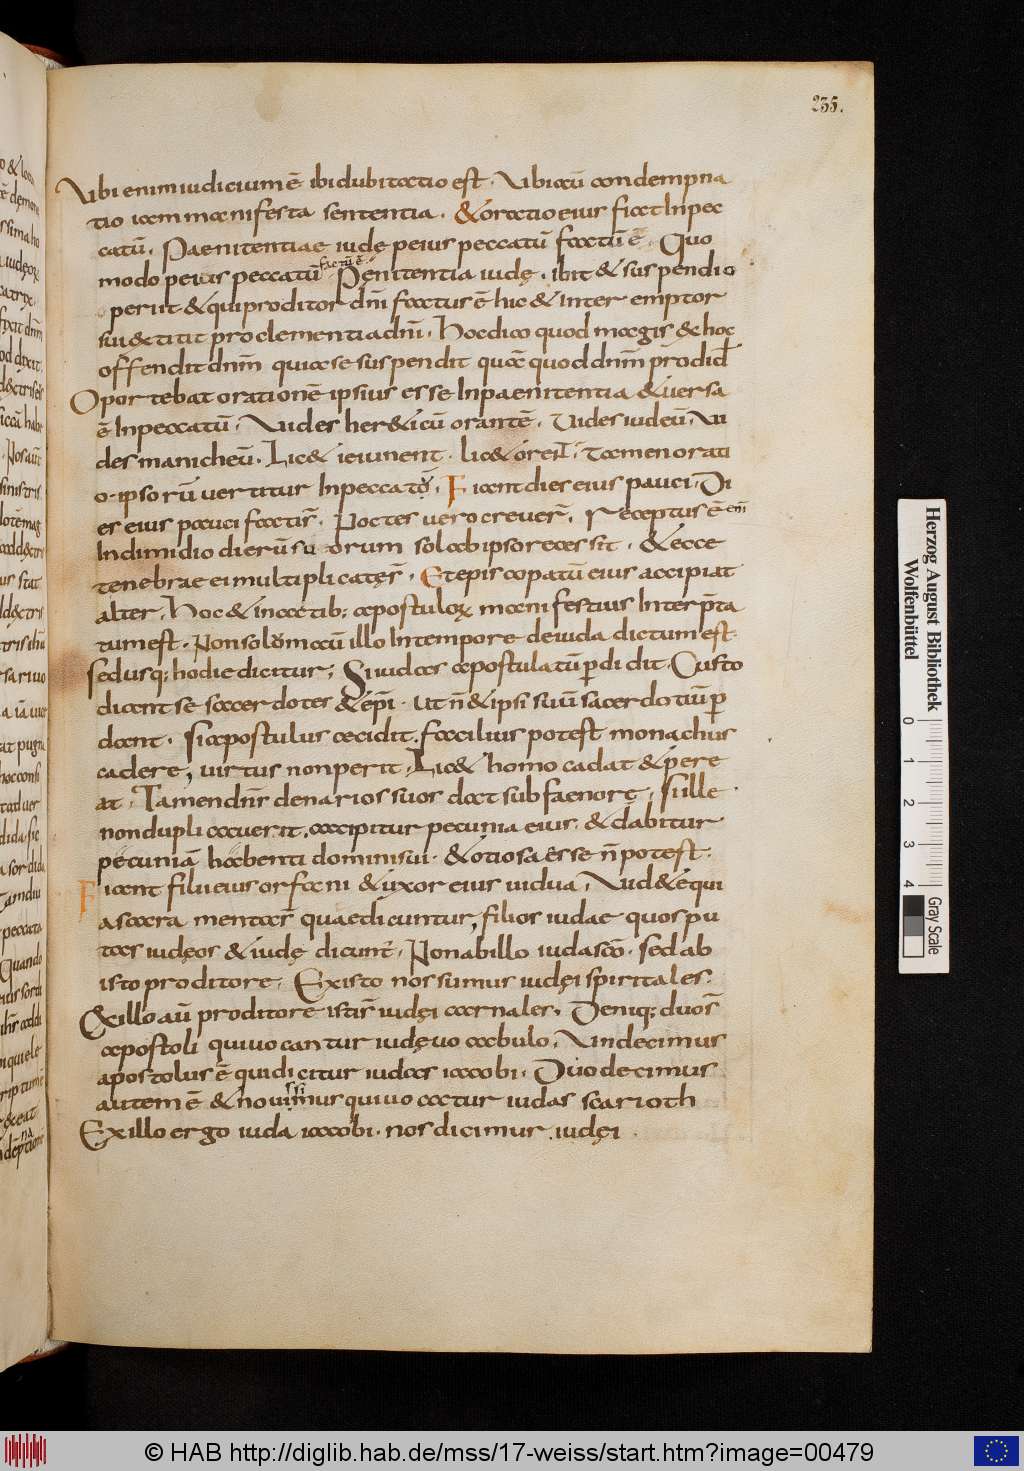 235.
Ubi enim iudicium ē ibi dubitatio est. Ubi aū condempna
tio iam manifesta sententia. & oratio eius fiat In pec
catū. Paenitentiae iudę peius peccatū factū ē. Quo
modo peius peccatū factū ē Penitentia iudę. ibit & suspendio
periit & qui proditor dn̄i factus ē hic & Interemptor
sui &titit pro clementia dn̄i. Hoc dico quod magis & hoc
offendit dn̄m quia se suspendit quā quod dn̄m prodid̄
Oportebat orationē ipsius esse In paenitentia & uersa
ē In peccatū. Uides her&icū orantē. Uides iudeū. Ui
des manicheū. Lic& ieiunent. lic& oreN̄. Tamen orati
o. ipsorū uertitur In peccatū. Fiant dies eius pauci. Di
es eius pauci facti s̄. Noctes uero creuer̄. Receptus ē eni
In dimidio dierū suorum sol ab ipso recessit. & ecce
tenebrae ei multiplicate s̄. Et episcopatū eius accipiat
alter. Hoc & in actib; apostuloꝝ manifestius Interp̄ta
tum est. Non solōm aū illo In tempore de iuda dictum est
sed usq; hodie dicitur; Si iudas apostulatū ꝑdidit. Custo
diant se sacerdotes & ep̄i. Ut n̄ & ipsi suū sacerdotiū ꝑ
dant. Si apostulus cecidit. facilius potest monachus
cadere, uirtus non perit. Lic& homo cadat & pere
at. Tamen dn̄s denarios suos dat sub faenore. Si ille
non duplicauerit. accipitur pecunia eius. & dabitur
pecuniā habenti domini sui. & otiosa esse n̄ potest.
Fiant filii eius orfani & uxor eius uidua. Uid& & qui
a sacramenta s̄ quae dicuntur, filios iudae quos pu
tas iudęos & iudę dicunt̄. Non ab illo iuda sc̄o. sed ab
isto proditore. Ex isto nos sumus iudęi spiritales.
Ex illo aū proditore isti s̄ iudęi carnales. Deniq; duo s̄
apostoli qui uocantur iudę uocabulo. Undecimus
apostolus ē qui dicitur iudas iacobi. Duodecimus
autem ē & nouissimus qui uocatur iudas scarioth
Ex illo ergo iuda iacobi. nos dicimur iudęi
Herzog August Bibliothek
Wolfenbüttel
0 1 2 3 4
Gray Scale
© HAB http://diglib.hab.de/mss/17-weiss/start.htm?image=00479